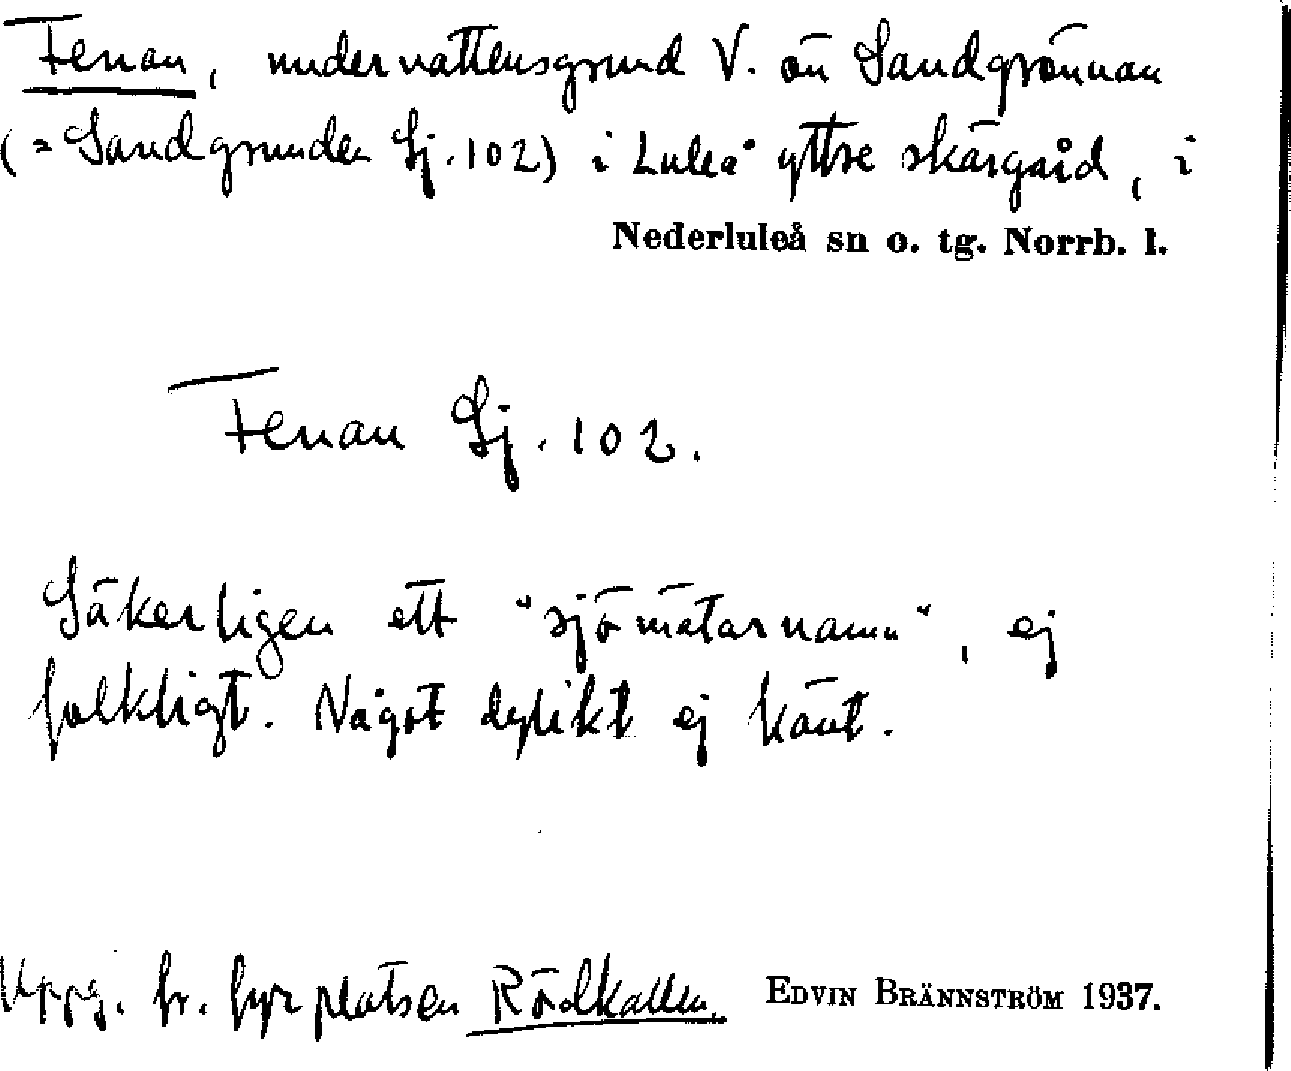 Fenan, undervattensgrund V. om Sandgrönnan
(= Sandgrunden Sj. 102) i Luleå yttre skärgård, i
Nederluleå sn o. tg. Norrb. l.
Fenan Sj. 102.
Säkerligen ett "sjömätarnamn", ej
folkligt. Något dylikt ej känt.
Uppg. fr. fyrplatsen Rödkallen.
EDVIN BRÄNNSTRÖM 1937.